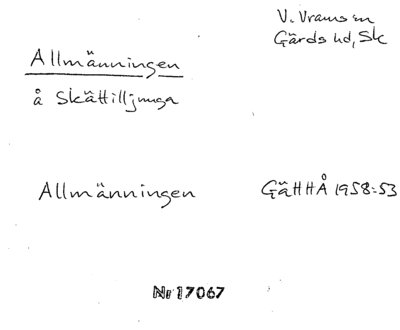 V. Vrams sn
Gärds hd, Sk
Allmänningen
å Skättilljunga
Allmänningen GäHHÅ 1958:53
Nr 17067